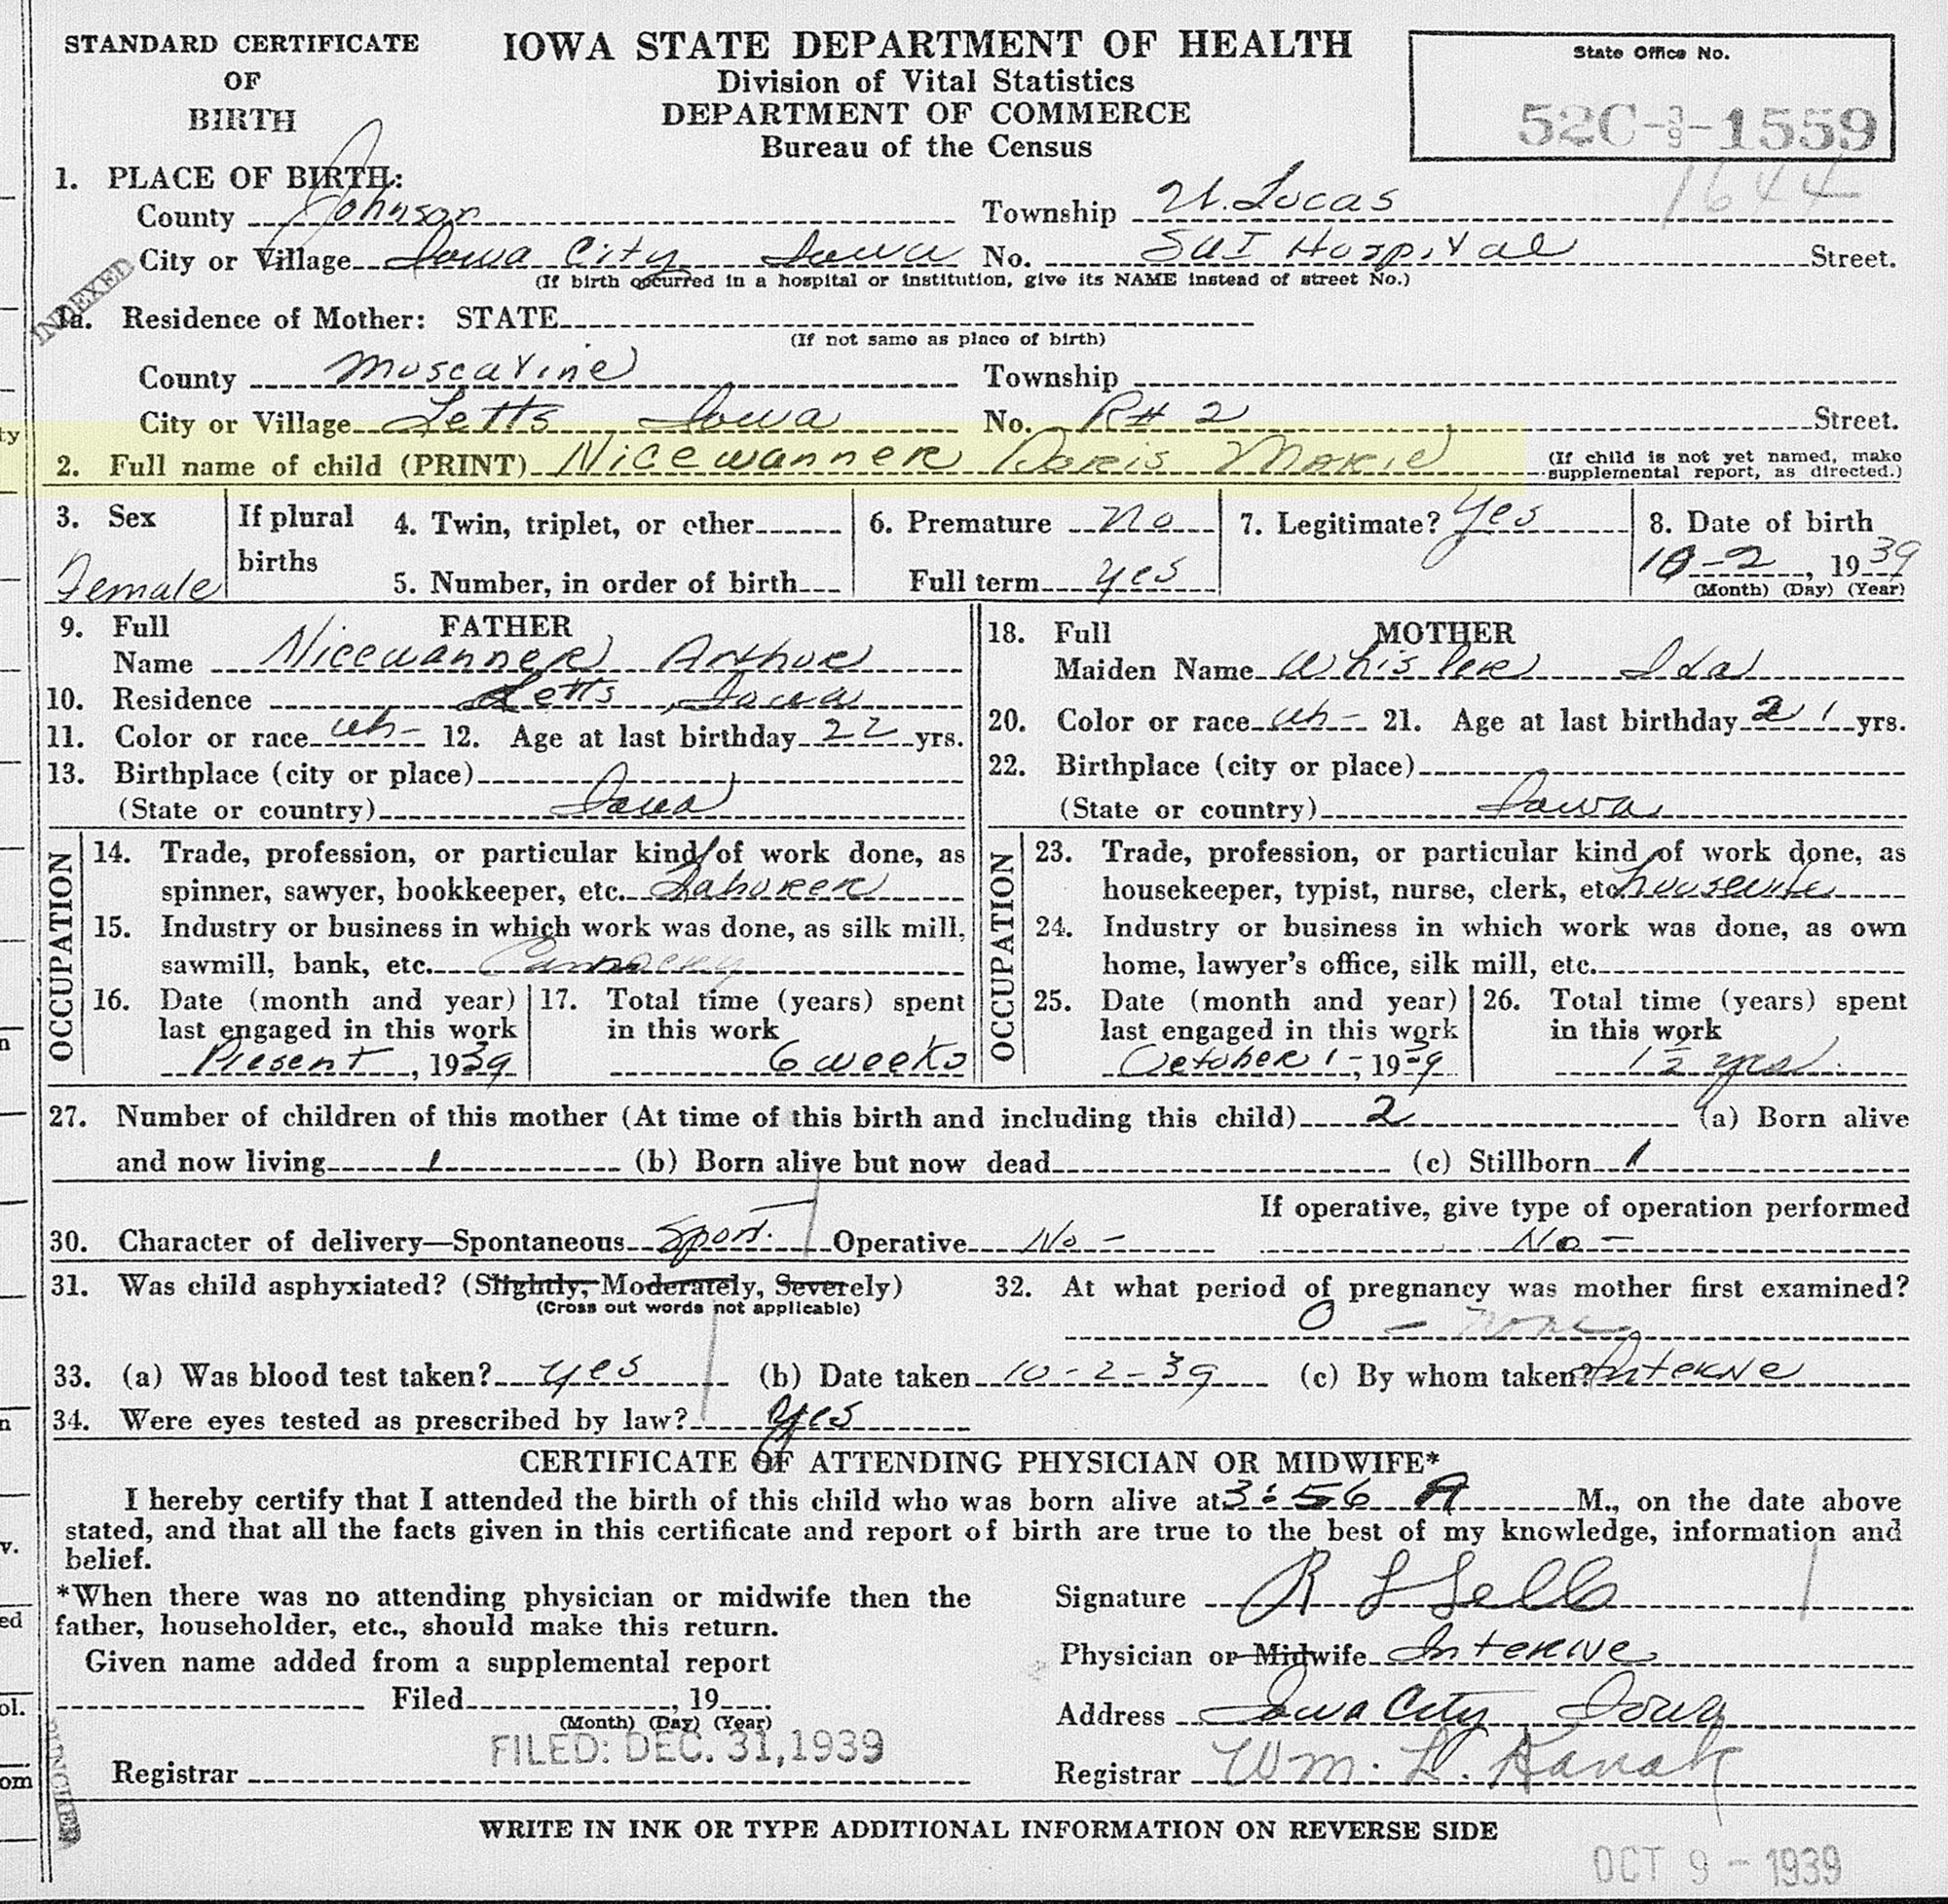 STANDARD CERTIFICATE
OF
BIRTH
IOWA STATE DEPARTMENT OF HEALTH
Division of Vital Statistics
DEPARTMENT OF COMMERCE
Bureau of the Census
State Office No.
52C-39-1559
1644
1. PLACE OF BIRTH:
County Johnson Township W. Lucas
City or Village Iowa City Iowa No. SUI Hospital Street.
(If birth occurred in a hospital or institution, give its NAME instead of street No.)
INDEXED
1a. Residence of Mother: STATE
(If not same as place of birth)
County Muscatine Township
City or Village Letts Iowa No. R# 2 Street.
2. Full name of child (PRINT) Nicewanner Doris Marie (If child is not yet named, make supplemental report, as directed.)
3. Sex Female
If plural births
4. Twin, triplet, or other
5. Number, in order of birth
6. Premature no
Full term yes
7. Legitimate? yes
8. Date of birth
10-2, 1939
(Month) (Day) (Year)
FATHER
9. Full Name Nicewanner Arthur
10. Residence Letts, Iowa
11. Color or race wh- 12. Age at last birthday 22 yrs.
13. Birthplace (city or place)
(State or country) Iowa
OCCUPATION
14. Trade, profession, or particular kind of work done, as
spinner, sawyer, bookkeeper, etc. Laborer
15. Industry or business in which work was done, as silk mill,
sawmill, bank, etc.
16. Date (month and year)
last engaged in this work
Present, 1939
17. Total time (years) spent
in this work
6 weeks
MOTHER
18. Full Maiden Name Whisler Ida
20. Color or race wh- 21. Age at last birthday 21 yrs.
22. Birthplace (city or place)
(State or country) Iowa
OCCUPATION
23. Trade, profession, or particular kind of work done, as
housekeeper, typist, nurse, clerk, etc. housewife
24. Industry or business in which work was done, as own
home, lawyer's office, silk mill, etc.
25. Date (month and year)
last engaged in this work
October 1-, 1939
26. Total time (years) spent
in this work
1½ yrs.
27. Number of children of this mother (At time of this birth and including this child) 2 (a) Born alive
and now living 1 (b) Born alive but now dead (c) Stillborn 1
If operative, give type of operation performed
30. Character of delivery—Spontaneous Spont. Operative No - No -
31. Was child asphyxiated? (Slightly, Moderately, Severely)
(Cross out words not applicable)
32. At what period of pregnancy was mother first examined?
0 - none
33. (a) Was blood test taken? yes (b) Date taken 10-2-39 (c) By whom taken? Interne
34. Were eyes tested as prescribed by law? yes
CERTIFICATE OF ATTENDING PHYSICIAN OR MIDWIFE*
I hereby certify that I attended the birth of this child who was born alive at 3:56 A M., on the date above
stated, and that all the facts given in this certificate and report of birth are true to the best of my knowledge, information and
belief.
*When there was no attending physician or midwife then the
father, householder, etc., should make this return.
Given name added from a supplemental report
Filed, 19
(Month) (Day) (Year)
FILED: DEC. 31, 1939
Registrar
Signature R L
Physician or Midwife Interne
Address Iowa City Iowa
Registrar Wm. L. Hanak
WRITE IN INK OR TYPE ADDITIONAL INFORMATION ON REVERSE SIDE
OCT 9 - 1939